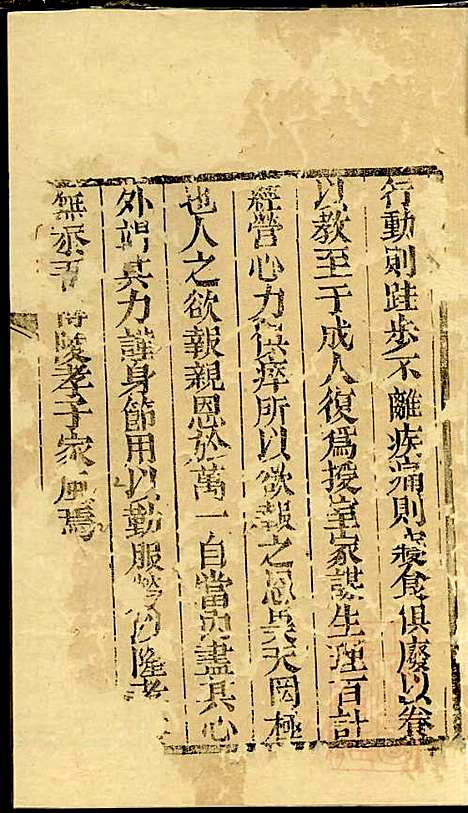 行動則跬步不離疾痛則寢食俱廢以養
以教至于成人復爲授室家謀生理百計
經營心力俱瘁所以欲報之恩昊天罔極
也人之欲報親恩於萬一自當內盡其心
外竭其力謹身節用以勤服勞以隆孝
無忝吾博陵孝子家風焉